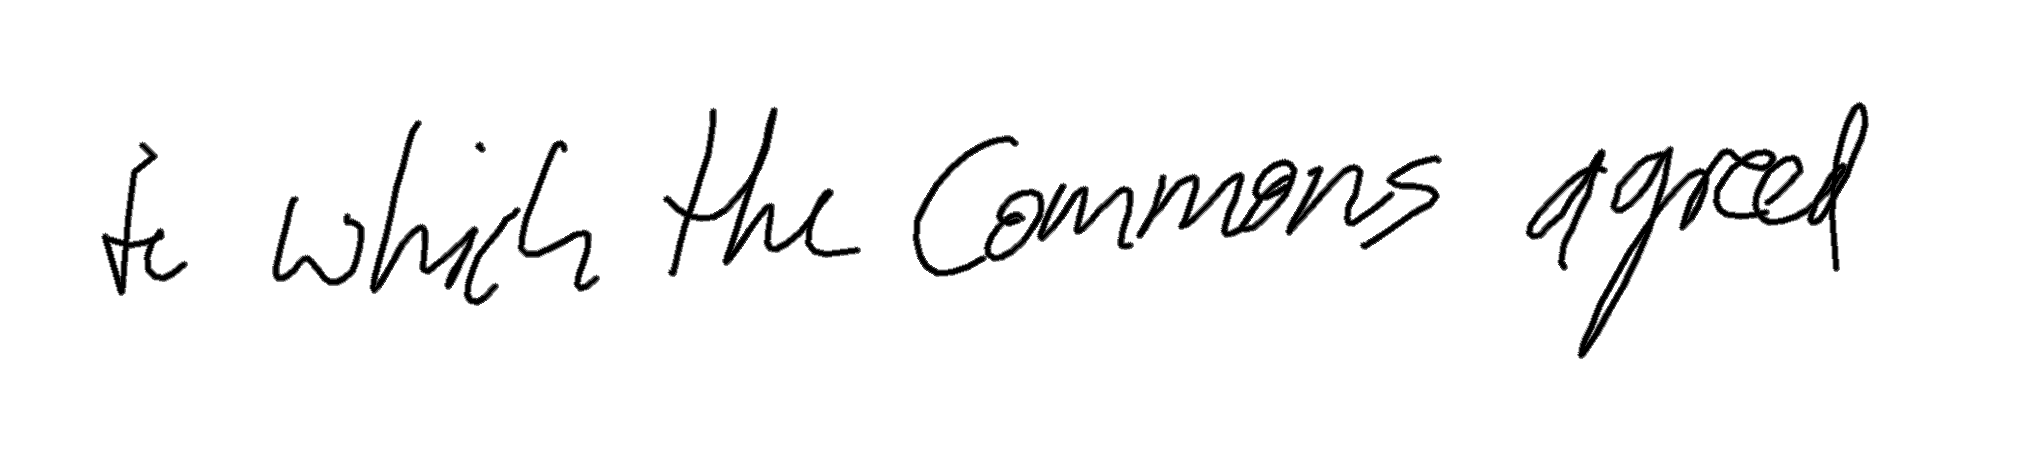 to which the Commons agreed